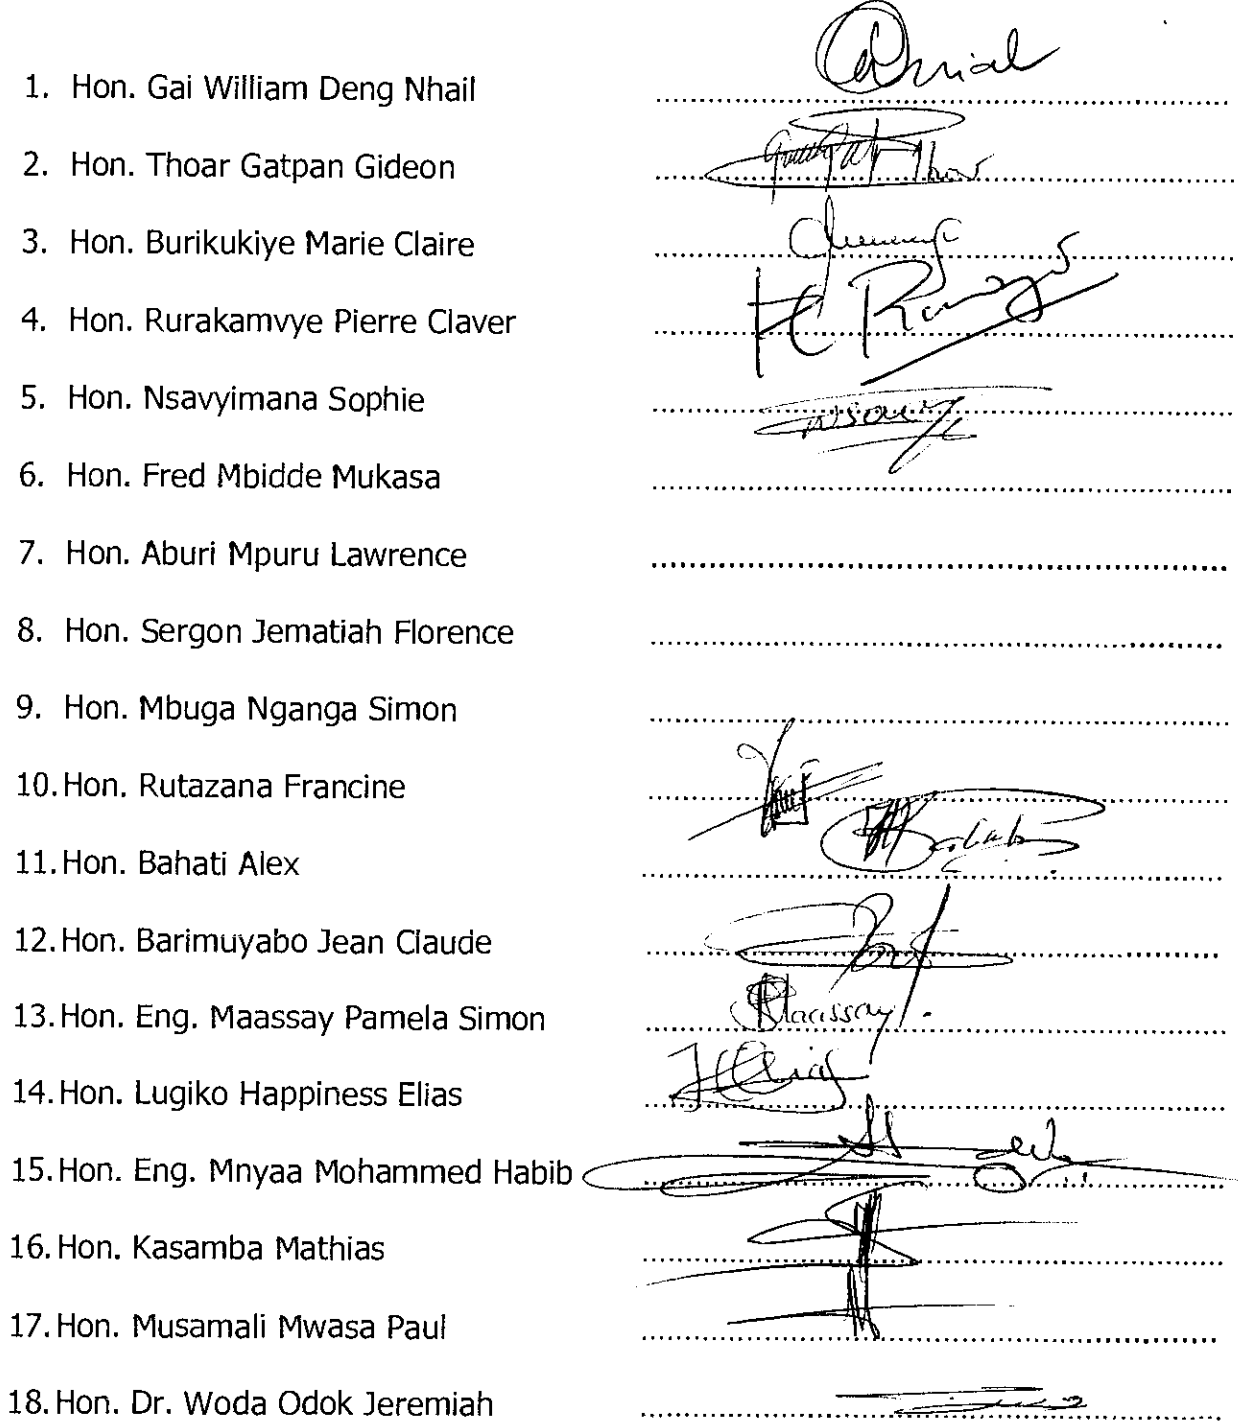 1. Hon. Gai William Deng Nhail
2. Hon. Thoar Gatpan Gideon
3. Hon. Burikukiye Marie Claire
4. Hon. Rurakamvye Pierre Claver
5. Hon. Nsavyimana Sophie
6. Hon. Fred Mbidde Mukasa
7. Hon. Aburi Mpuru Lawrence
8. Hon. Sergon Jematiah Florence
9. Hon. Mbuga Nganga Simon
10. Hon. Rutazana Francine
11. Hon. Bahati Alex
12. Hon. Barimuyabo Jean Claude
13. Hon. Eng. Maassay Pamela Simon Maassay
14. Hon. Lugiko Happiness Elias
15. Hon. Eng. Mnyaa Mohammed Habib
16. Hon. Kasamba Mathias
17. Hon. Musamali Mwasa Paul
18. Hon. Dr. Woda Odok Jeremiah